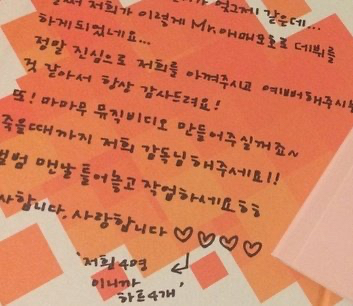 저희가 이렇게 Mr.애매모호로 데뷔를
하게 되었네요...
정말 진심으로 저희를 아껴주시고 예뻐해주시는
것 같아서 항상 감사드려요!
또! 마마무 뮤직비디오 만들어주실꺼죠~
죽을때까지 저희 감독님 해주세요!!
맨날 틀어놓고 작업하세요ㅎㅎ
사랑합니다 ♡♡♡♡
'저희 4명
이니까
하트4개'